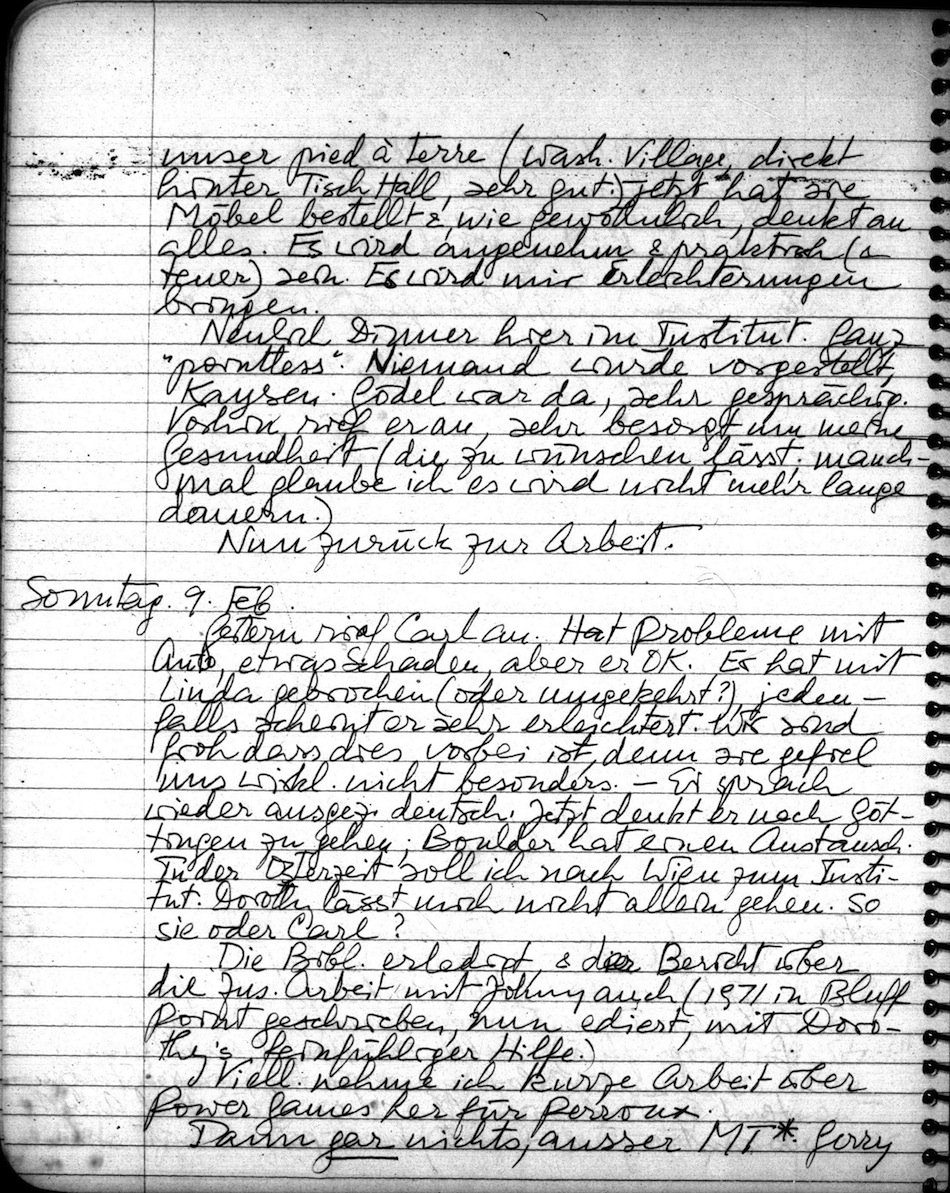 unser pied à terre (Wash. Village, direkt
hinter Tisch Hall, sehr gut.) jetzt hat sie
Möbel bestellt &, wie gewöhnlich, denkt an
alles. Es wird angenehm & praktisch (&
teuer) sein. Es wird mir Erleichterungen
bringen.
Neulich Dinner hier im Institut. Ganz
"pointless". Niemand wurde vorgestellt,
Kaysen. Gödel war da, sehr gesprächig.
Vorhin rief er an, sehr besorgt um meine
Gesundheit (die zu wünschen lässt; manch-
mal glaube ich es wird nicht mehr lange
dauern.)
Nun zurück zur Arbeit.
Sonntag. 9. Feb.
Gestern rief Carl an. Hat Probleme mit
Auto, etwas Schaden, aber er OK. Er hat mit
Linda gebrochen (oder umgekehrt?), jeden-
falls scheint er sehr erleichtert. Wir sind
froh dass dies vorbei ist, denn sie gefiel
uns wirkl. nicht besonders. – Er sprach
wieder ausgez. deutsch. Jetzt denkt er nach Göt-
tingen zu gehen; Boulder hat einen Austausch.
In der Osterzeit soll ich nach Wien zum Insti-
tut. Dorothy lässt mich nicht allein gehen. So
sie oder Carl?
Die Bibl. erledigt, & der Bericht über
die Zus. Arbeit mit Johnny auch (1971 in Bluff
Point geschrieben, nun ediert, mit Doro-
thy's feinfühliger Hilfe.)
Viell. nehme ich kurze Arbeit über
Power Games her für Perroux.
Dann gar nichts, ausser MT*. Gerry